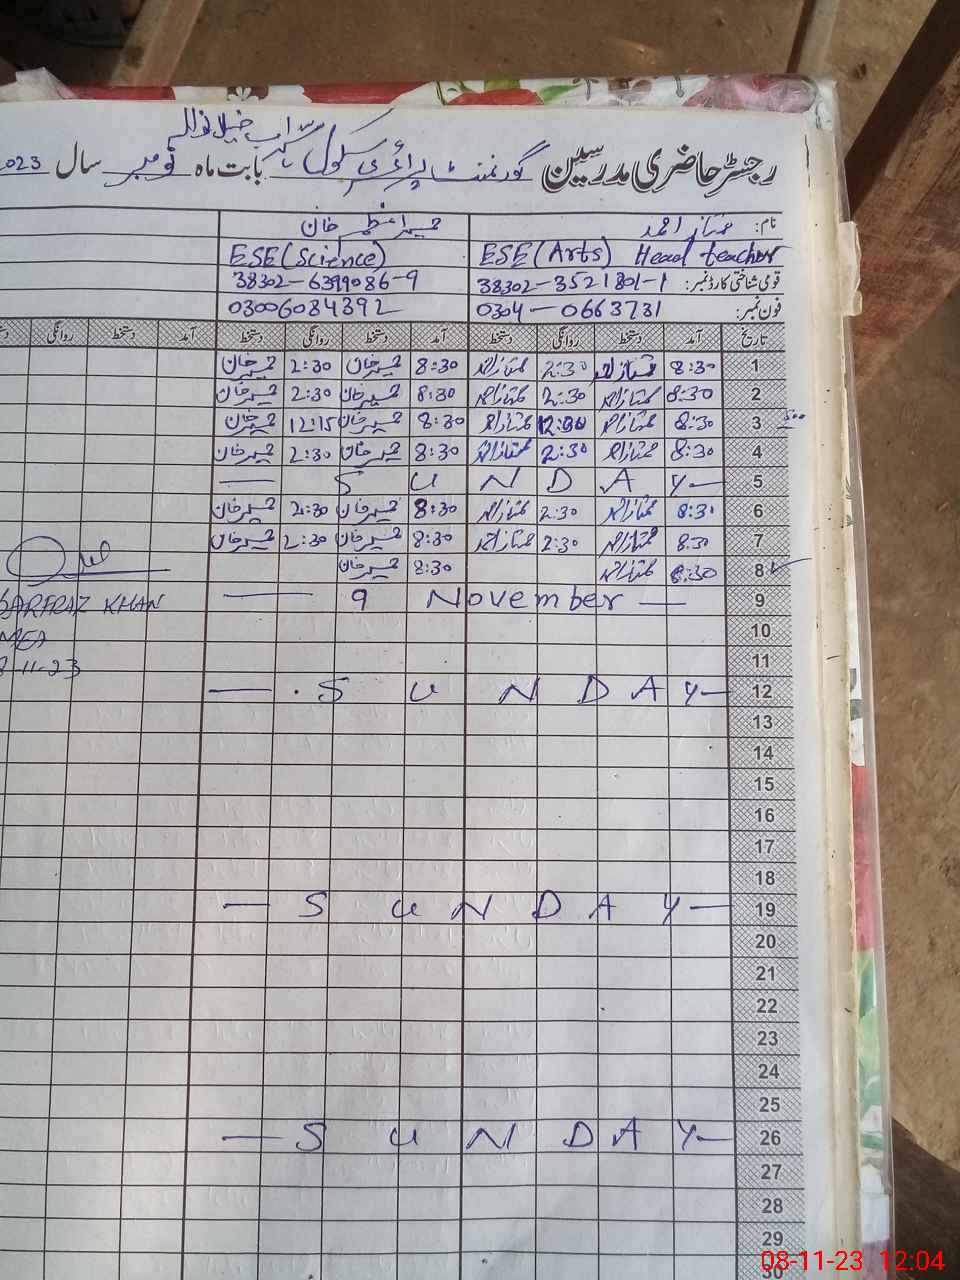 رجسٹر حاضری مدرسین گورنمنٹ پرائمری سکول بابت ماہ نومبر سال 2023
نام: ممتاز احمد حمید اعظم خان
ESE (Arts) Head teacher ESE (Science)
قومی شناختی کارڈ نمبر: 38302-3521801-1 38302-6399086-9
فون نمبر: 0304-0663731 03006084392
تاریخ آمد دستخط روانگی دستخط آمد دستخط روانگی دستخط آمد دستخط روانگی
1 8:30 ممتاز احمد 2:30 ممتاز احمد 8:30 حمید خان 2:30 حمید خان
2 8:30 ممتاز احمد 2:30 ممتاز احمد 8:30 حمید خان 2:30 حمید خان
3 8:30 ممتاز احمد 12:00 ممتاز احمد 8:30 حمید خان 12:15 حمید خان
4 8:30 ممتاز احمد 2:30 ممتاز احمد 8:30 حمید خان 2:30 حمید خان
5 — S U N D A Y —
6 8:30 ممتاز احمد 2:30 ممتاز احمد 8:30 حمید خان 2:30 حمید خان
7 8:30 ممتاز احمد 2:30 ممتاز احمد 8:30 حمید خان 2:30 حمید خان
8 8:30 ممتاز احمد 8:30 حمید خان
9 — 9 November —
SARFRAZ KHAN
10
MEA
11
8-11-23
12 — S U N D A Y —
13
14
15
16
17
18
19 — S U N D A Y —
20
21
22
23
24
25
26 — S U N D A Y —
27
28
29
30
08-11-23 12:04